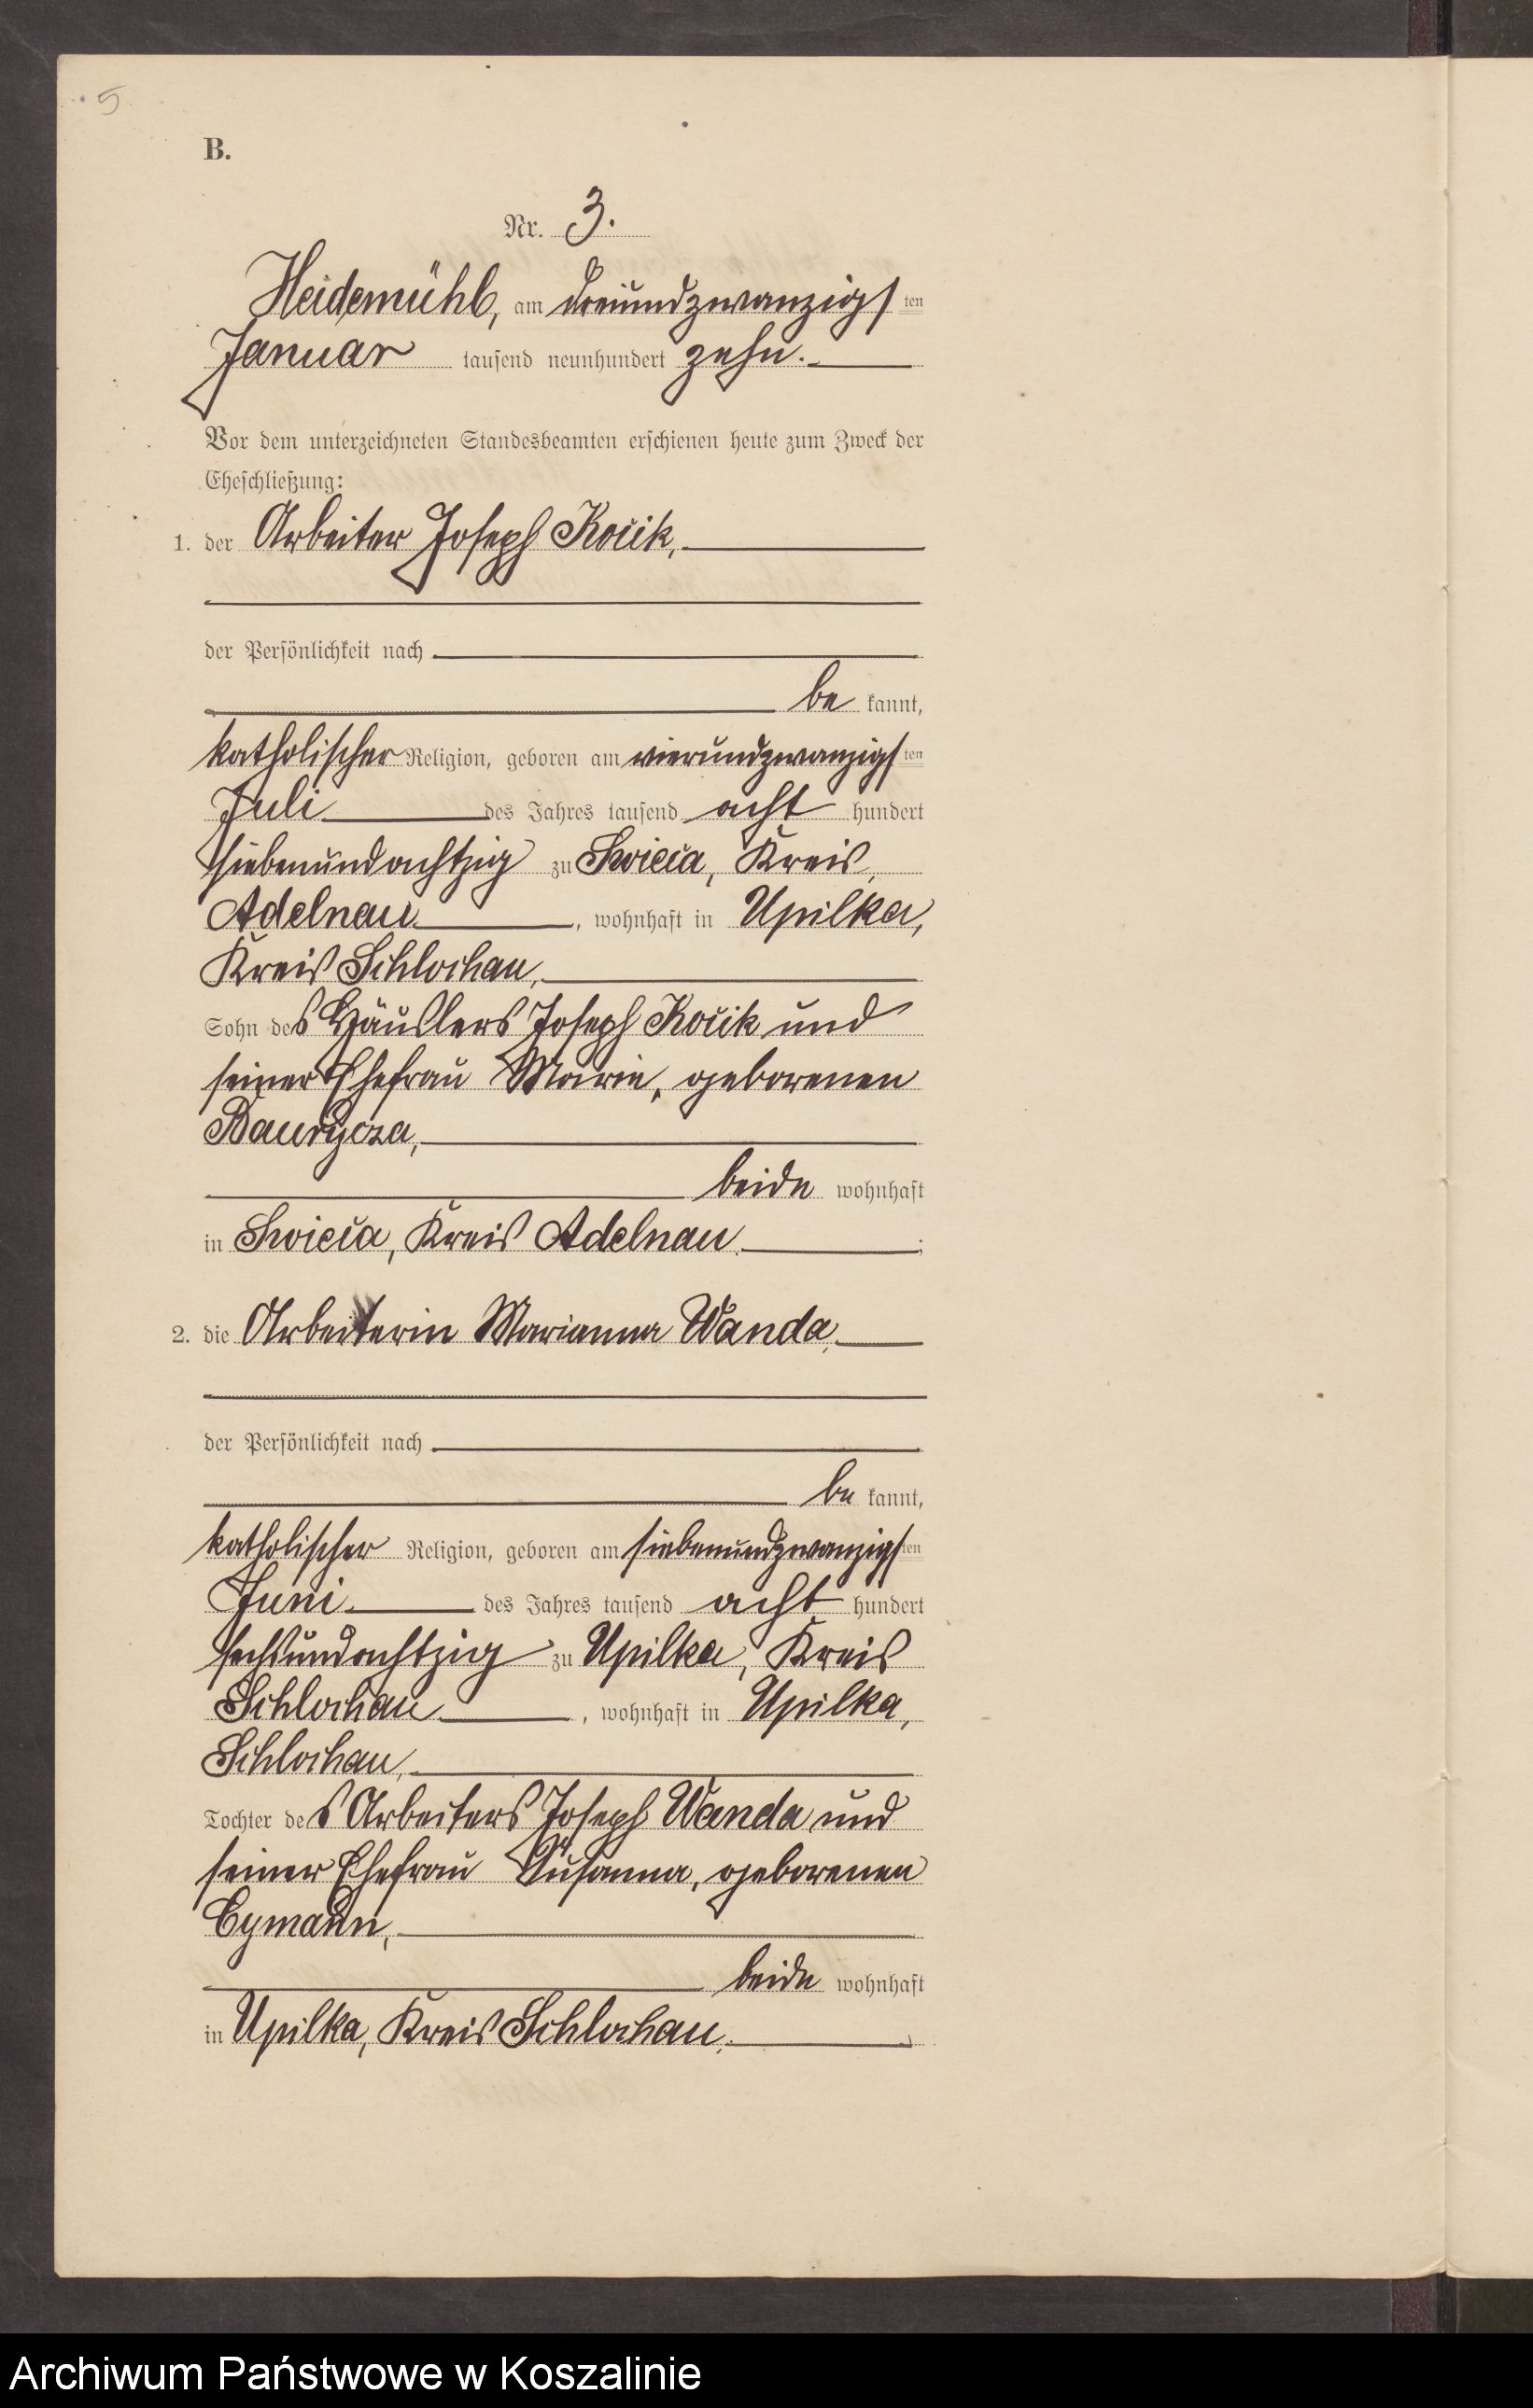 5
B.
Nr. 3.
Heidemühl, am dreiundzwanzigsten
Januar tausend neunhundert zehn.
Vor dem unterzeichneten Standesbeamten erschienen heute zum Zweck der
Eheschließung:
1. der Arbeiter Joseph Kocik,
der Persönlichkeit nach
be kannt,
katholischer Religion, geboren am vierundzwanzigsten
Juli des Jahres tausend acht hundert
siebenundachtzig zu Swieca, Kreis
Adelnau, wohnhaft in Upilka,
Kreis Schlochau,
Sohn des Häuslers Joseph Kocik und
seiner Ehefrau Marie, geborenen
beide wohnhaft
in Swieca, Kreis Adelnau;
2. die Arbeiterin Marianna Wanda,
der Persönlichkeit nach
be kannt,
katholischer Religion, geboren am siebenundzwanzigsten
Juni des Jahres tausend acht hundert
sechsundachtzig zu Upilka, Kreis
Schlochau, wohnhaft in Upilka,
Schlochau,
Tochter des Arbeiters Joseph Wanda und
seiner Ehefrau Susanna, geborenen
Cymann,
beide wohnhaft
in Upilka, Kreis Schlochau.
Archiwum Państwowe w Koszalinie